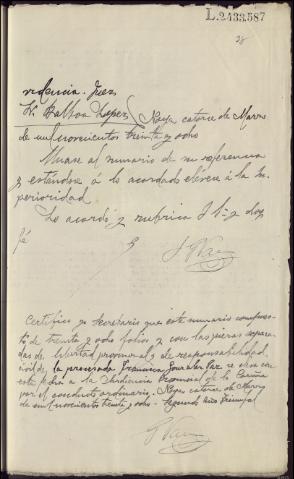 L.2433.587
38
Juez
Sr. Balboa Lopez Noya catorce de Marzo
de mil novecientos treinta y ocho
Unase al sumario de su referencia
y estándose á lo acordado elévese á la Su-
perioridad
Lo acordó y rubrica S Sª y doy
fé
Certifico yo Secretario que este sumario compues-
to de treinta y ocho folios y con las piezas separa-
das de libertad provisional y de responsabilidad
civil de la procesada Francisca González Paz se eleva en
este dia a la Audiencia Provincial de la Coruña
por el conducto ordinario. Noya catorce de Marzo
de mil novecientos treinta y ocho. Segundo Año Triunfal